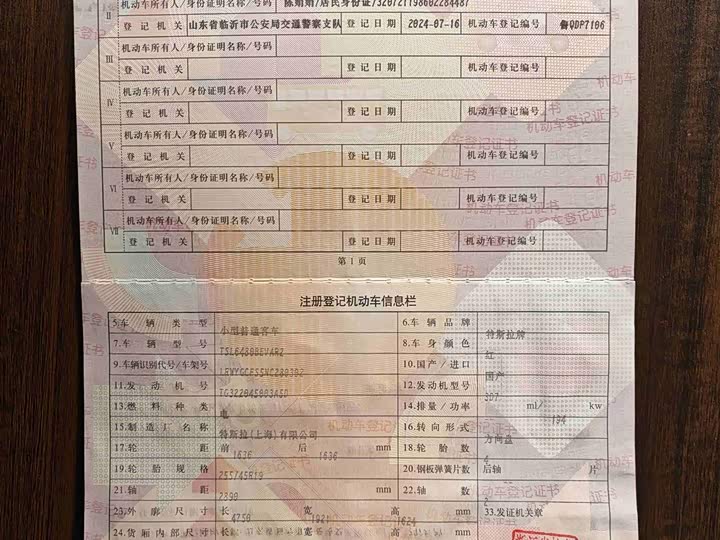 II 机动车所有人/身份证明名称/号码
登记机关 山东省临沂市公安局交通警察支队 登记日期 2024-07-16 机动车登记编号 鲁QDP7106
III 机动车所有人/身份证明名称/号码
登记机关 登记日期 机动车登记编号
IV 机动车所有人/身份证明名称/号码
登记机关 登记日期 机动车登记编号
V 机动车所有人/身份证明名称/号码
登记机关 登记日期 机动车登记编号
VI 机动车所有人/身份证明名称/号码
登记机关 登记日期 机动车登记编号
VII 机动车所有人/身份证明名称/号码
登记机关 登记日期 机动车登记编号
第1页
注册登记机动车信息栏
5.车辆类型 小型普通客车 6.车辆品牌 特斯拉牌
7.车辆型号 TSL6480BEVARZ 8.车身颜色 红
9.车辆识别代号/车架号 10.国产/进口 国产
11.发动机号 12.发动机型号 3D7
13.燃料种类 电 14.排量/功率 ml/ 194 kw
15.制造厂名称 特斯拉(上海)有限公司 16.转向形式 方向盘
17.轮距 前 1636 后 1636 mm 18.轮胎数 4
19.轮胎规格 255/45R19 20.钢板弹簧片数 后轴 片
21.轴距 mm 22.轴数 2
23.外廓尺寸 长 4750 宽 1921 高 1624 mm 33.发证机关章
24.货厢内部尺寸 长 宽 高 mm